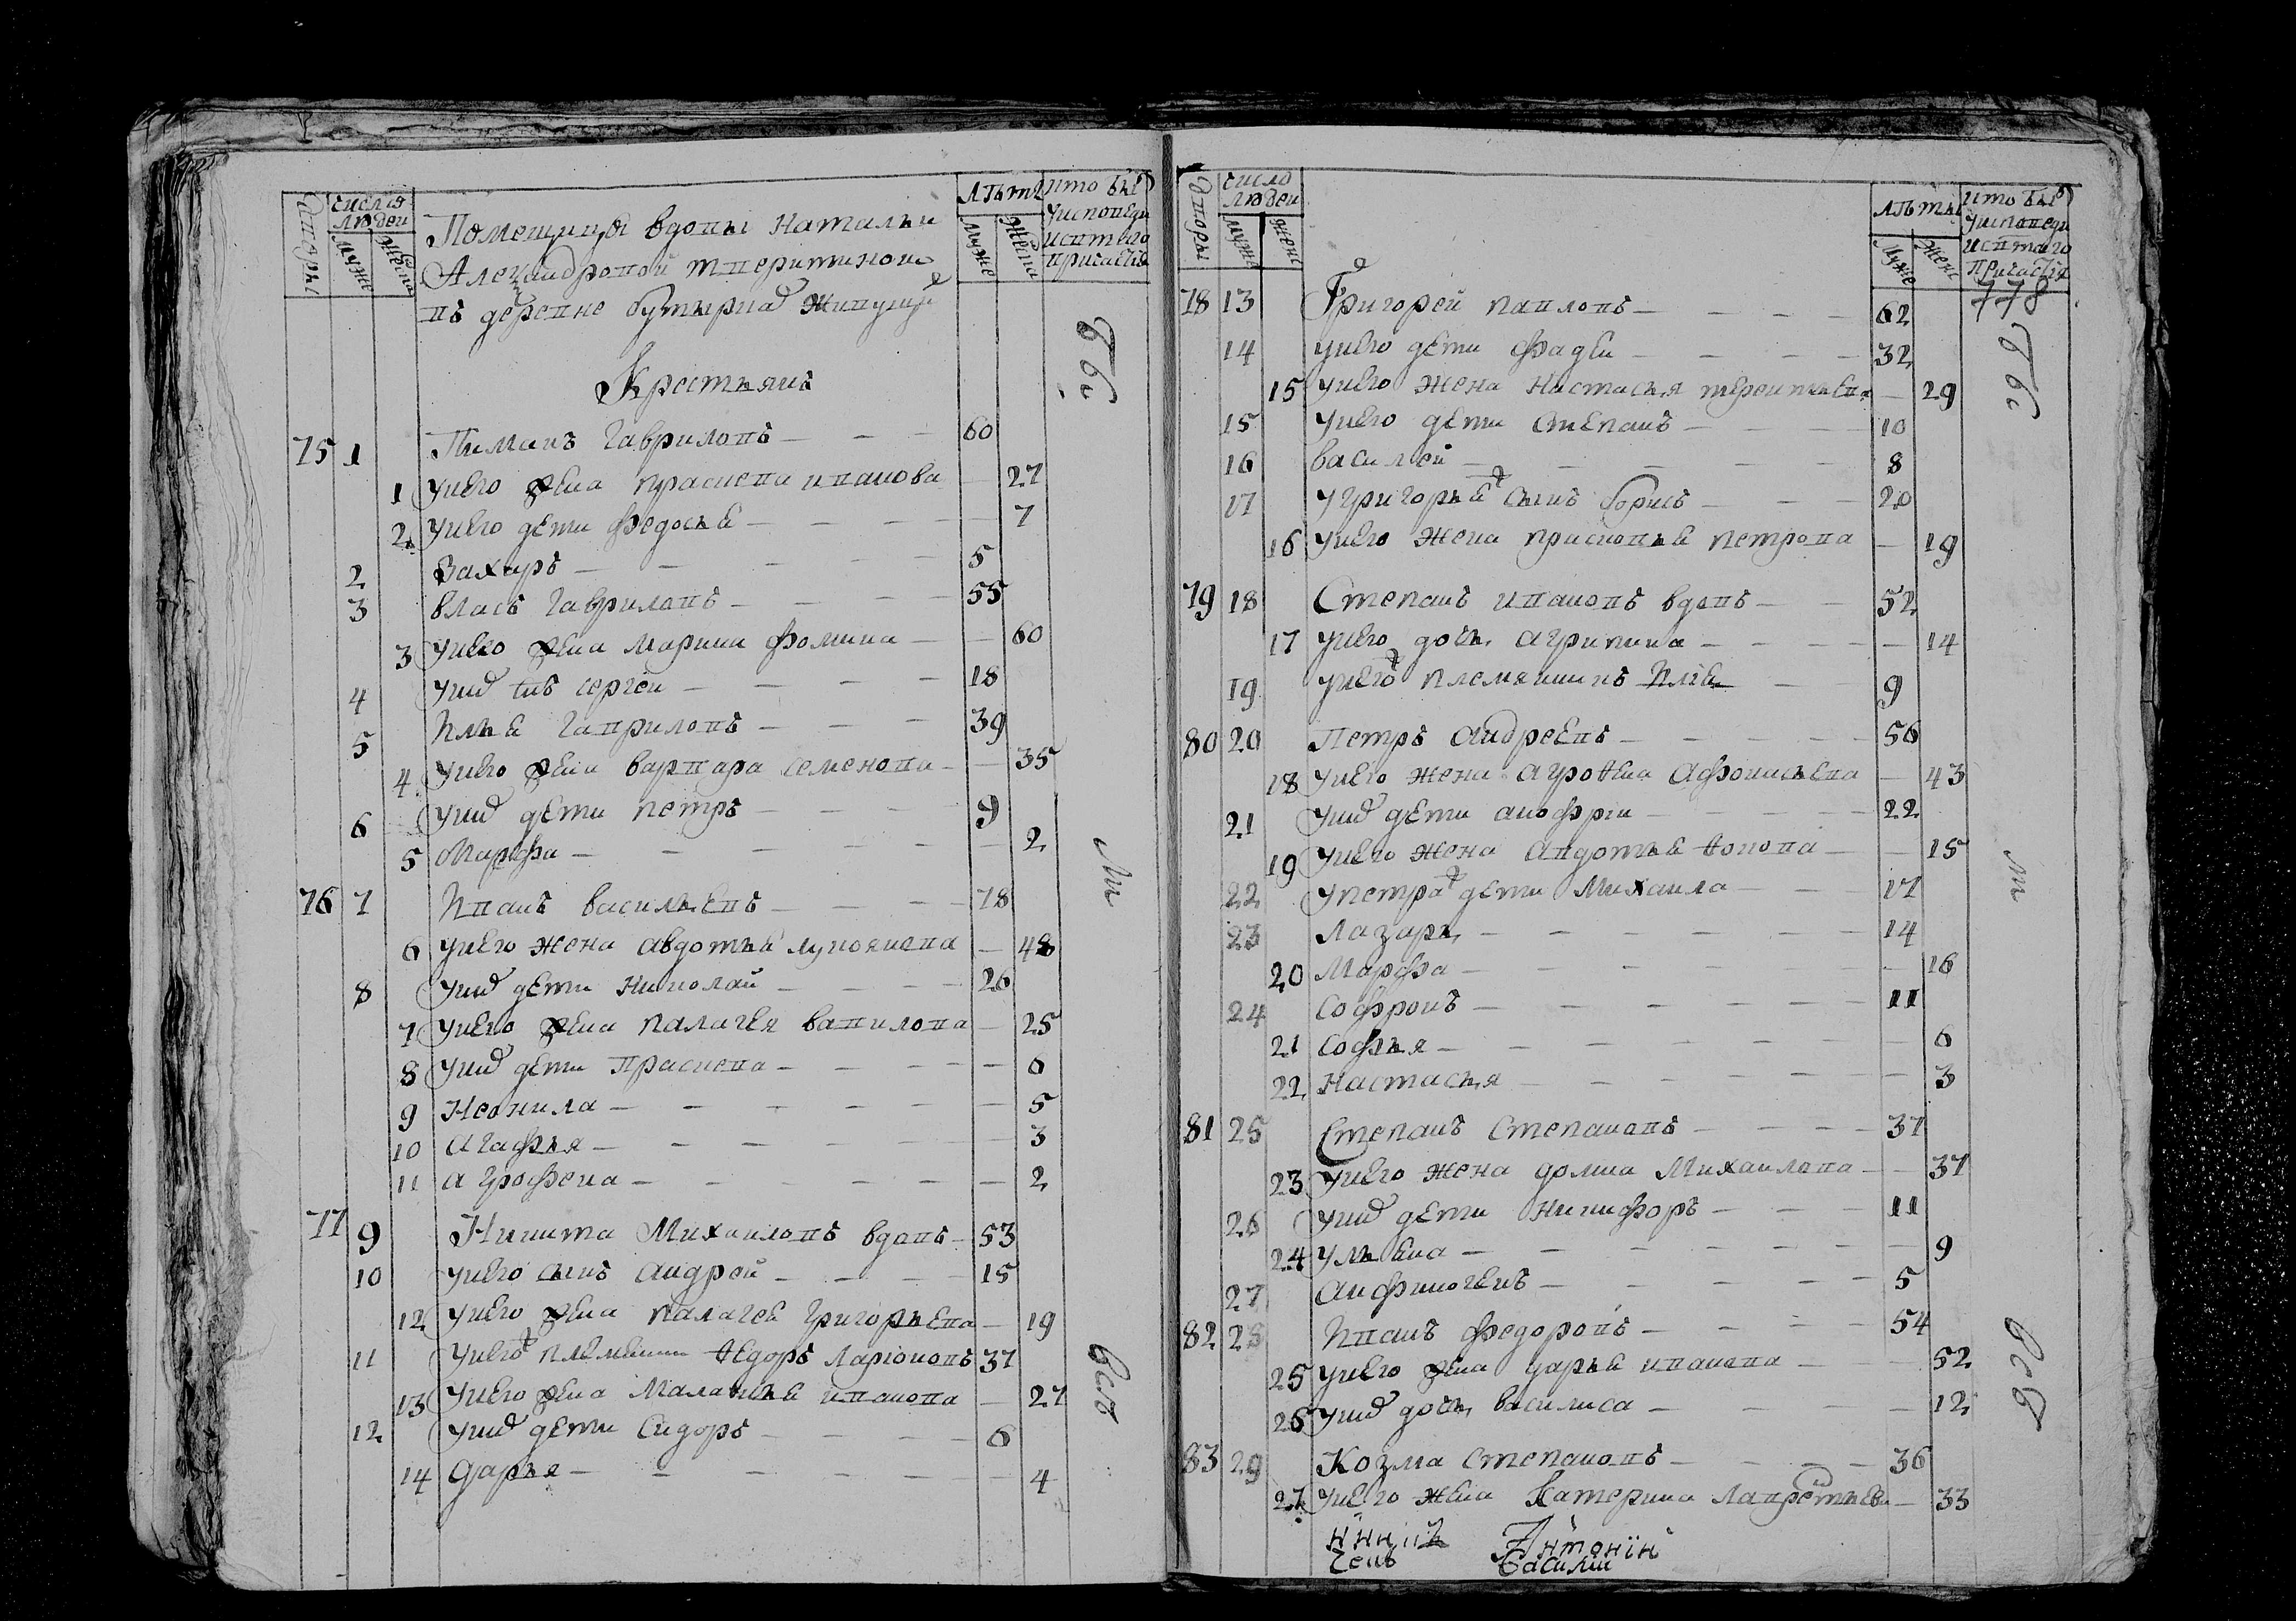 дворы
число людеи
муже
женс
Помещицы вдовы Натальи
Александровой тперитиновои
въ деревне бутырках живущих
Крестьянъ
лѣты
муже
женс
кто был
у исповеди
и святаго
причастия
бы
ли
все
75 1 Пиманъ Гавриловъ — 60
1 у него жена прасковя иванова — 27
2 у него дети федосья — 7
2 Захаръ — 5
3 власъ Гавриловъ — 55
3 у него жена марина фомина — 60
4 у них сынъ сергеи — 18
5 Илья Гавриловъ — 39
4 у него жена варвара семенова — 35
6 у них дети петръ — 9
5 Марфа — 2
76 7 Иванъ васильевъ — 78
6 у него жена авдотья лукоянова — 48
8 у них дети николай — 26
7 у него жена палагея вавилова — 25
8 у них дети Прасковя — 6
9 Неонила — 5
10 агафья — 3
11 агрофена — 2
77 9 Никита Михаиловъ вдовъ — 53
10 у него сынъ андрей — 15
12 у него жена палагея григорьева — 19
11 у него ж племянник Ѳедоръ ларионовъ 37
13 у него жена Маланья иванова — 27
12 у них дети Сидоръ — 6
14 дарья — 4
дворы
число людеи
муже
женс
лѣты
муже
женс
кто был
у исповеди
и святаго
причастия
778
бы
ли
все
78 13 Григорей павловъ — 62
14 у него дети фадеи — 32
15 у него жена настасья терентьева — 29
15 у него дети степанъ — 10
16 василей — 8
17 у григорья ж сынъ борисъ — 20
16 у него жена прасковья петрова — 19
79 18 Степанъ ивановъ вдовъ — 52
17 у него дочь агрипина — 14
19 у него ж племянникъ Илья — 9
80 20 Петръ андреевъ — 56
18 у него жена агроѳена афонасьева — 43
21 у них дети анофрiи — 22
19 у него жена авдотья ѳокова — 15
22 у петра ж дети Михаила — 17
23 Лазарь — 14
20 Марфа — 16
24 софронъ — 11
21 софья — 6
22 настасья — 3
81 25 Степанъ степановъ — 37
23 у него жена домна Михаилова — 37
26 у них дети никифоръ — 11
24 ульяна — 9
27 анфиногенъ — 5
82 28 Иванъ федоровъ — 54
25 у него жена дарья иванова — 52
26 у них дочь василиса — 12
83 29 Козма степановъ — 36
27 у него жена катерина лаврентьева — 33
Антонiи
василiи